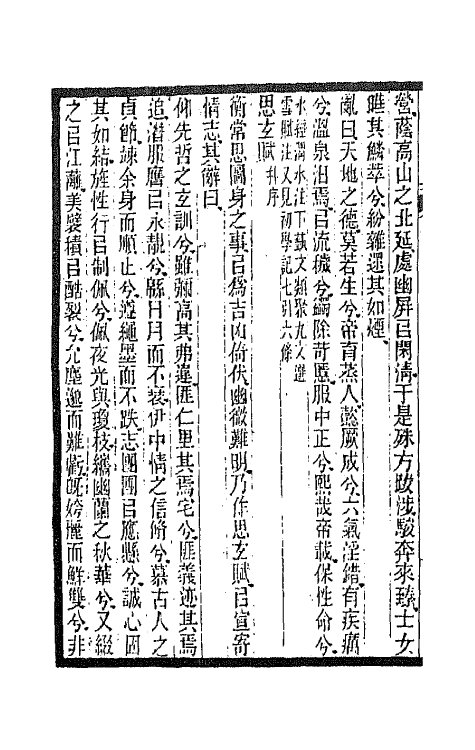 營蔭高山之北延處幽屏㠯閑清于是殊方跋涉駿奔來臻士女
曄其鱗萃兮紛雜遝其如煙
亂曰天地之德莫若生兮帝育蒸人懿厥成兮六氣淫錯有疾癘
兮溫泉汨焉㠯流穢兮蠲除苛慝服中正兮熙哉帝載保性命兮
水經渭水注下蓺文類聚九文選
雪賦注又見初學記七引六條
思玄賦幷序
衡常思圖身之事㠯爲吉凶倚伏幽微難明乃作思玄賦㠯宣寄
情志其辭曰
仰先哲之玄訓兮雖彌高其弗違匪仁里其焉宅兮匪義迹其焉
追潛服膺㠯永靚兮緜日月而不衰伊中情之信脩兮慕古人之
貞節竦余身而順止兮遵繩墨而不跌志團團㠯應懸兮誠心固
其如結旌性行㠯制佩兮佩夜光與瓊枝纗幽蘭之秋華兮又綴
之㠯江蘺美襞積㠯酷裂兮允塵邈而難虧旣姱麗而鮮雙兮非